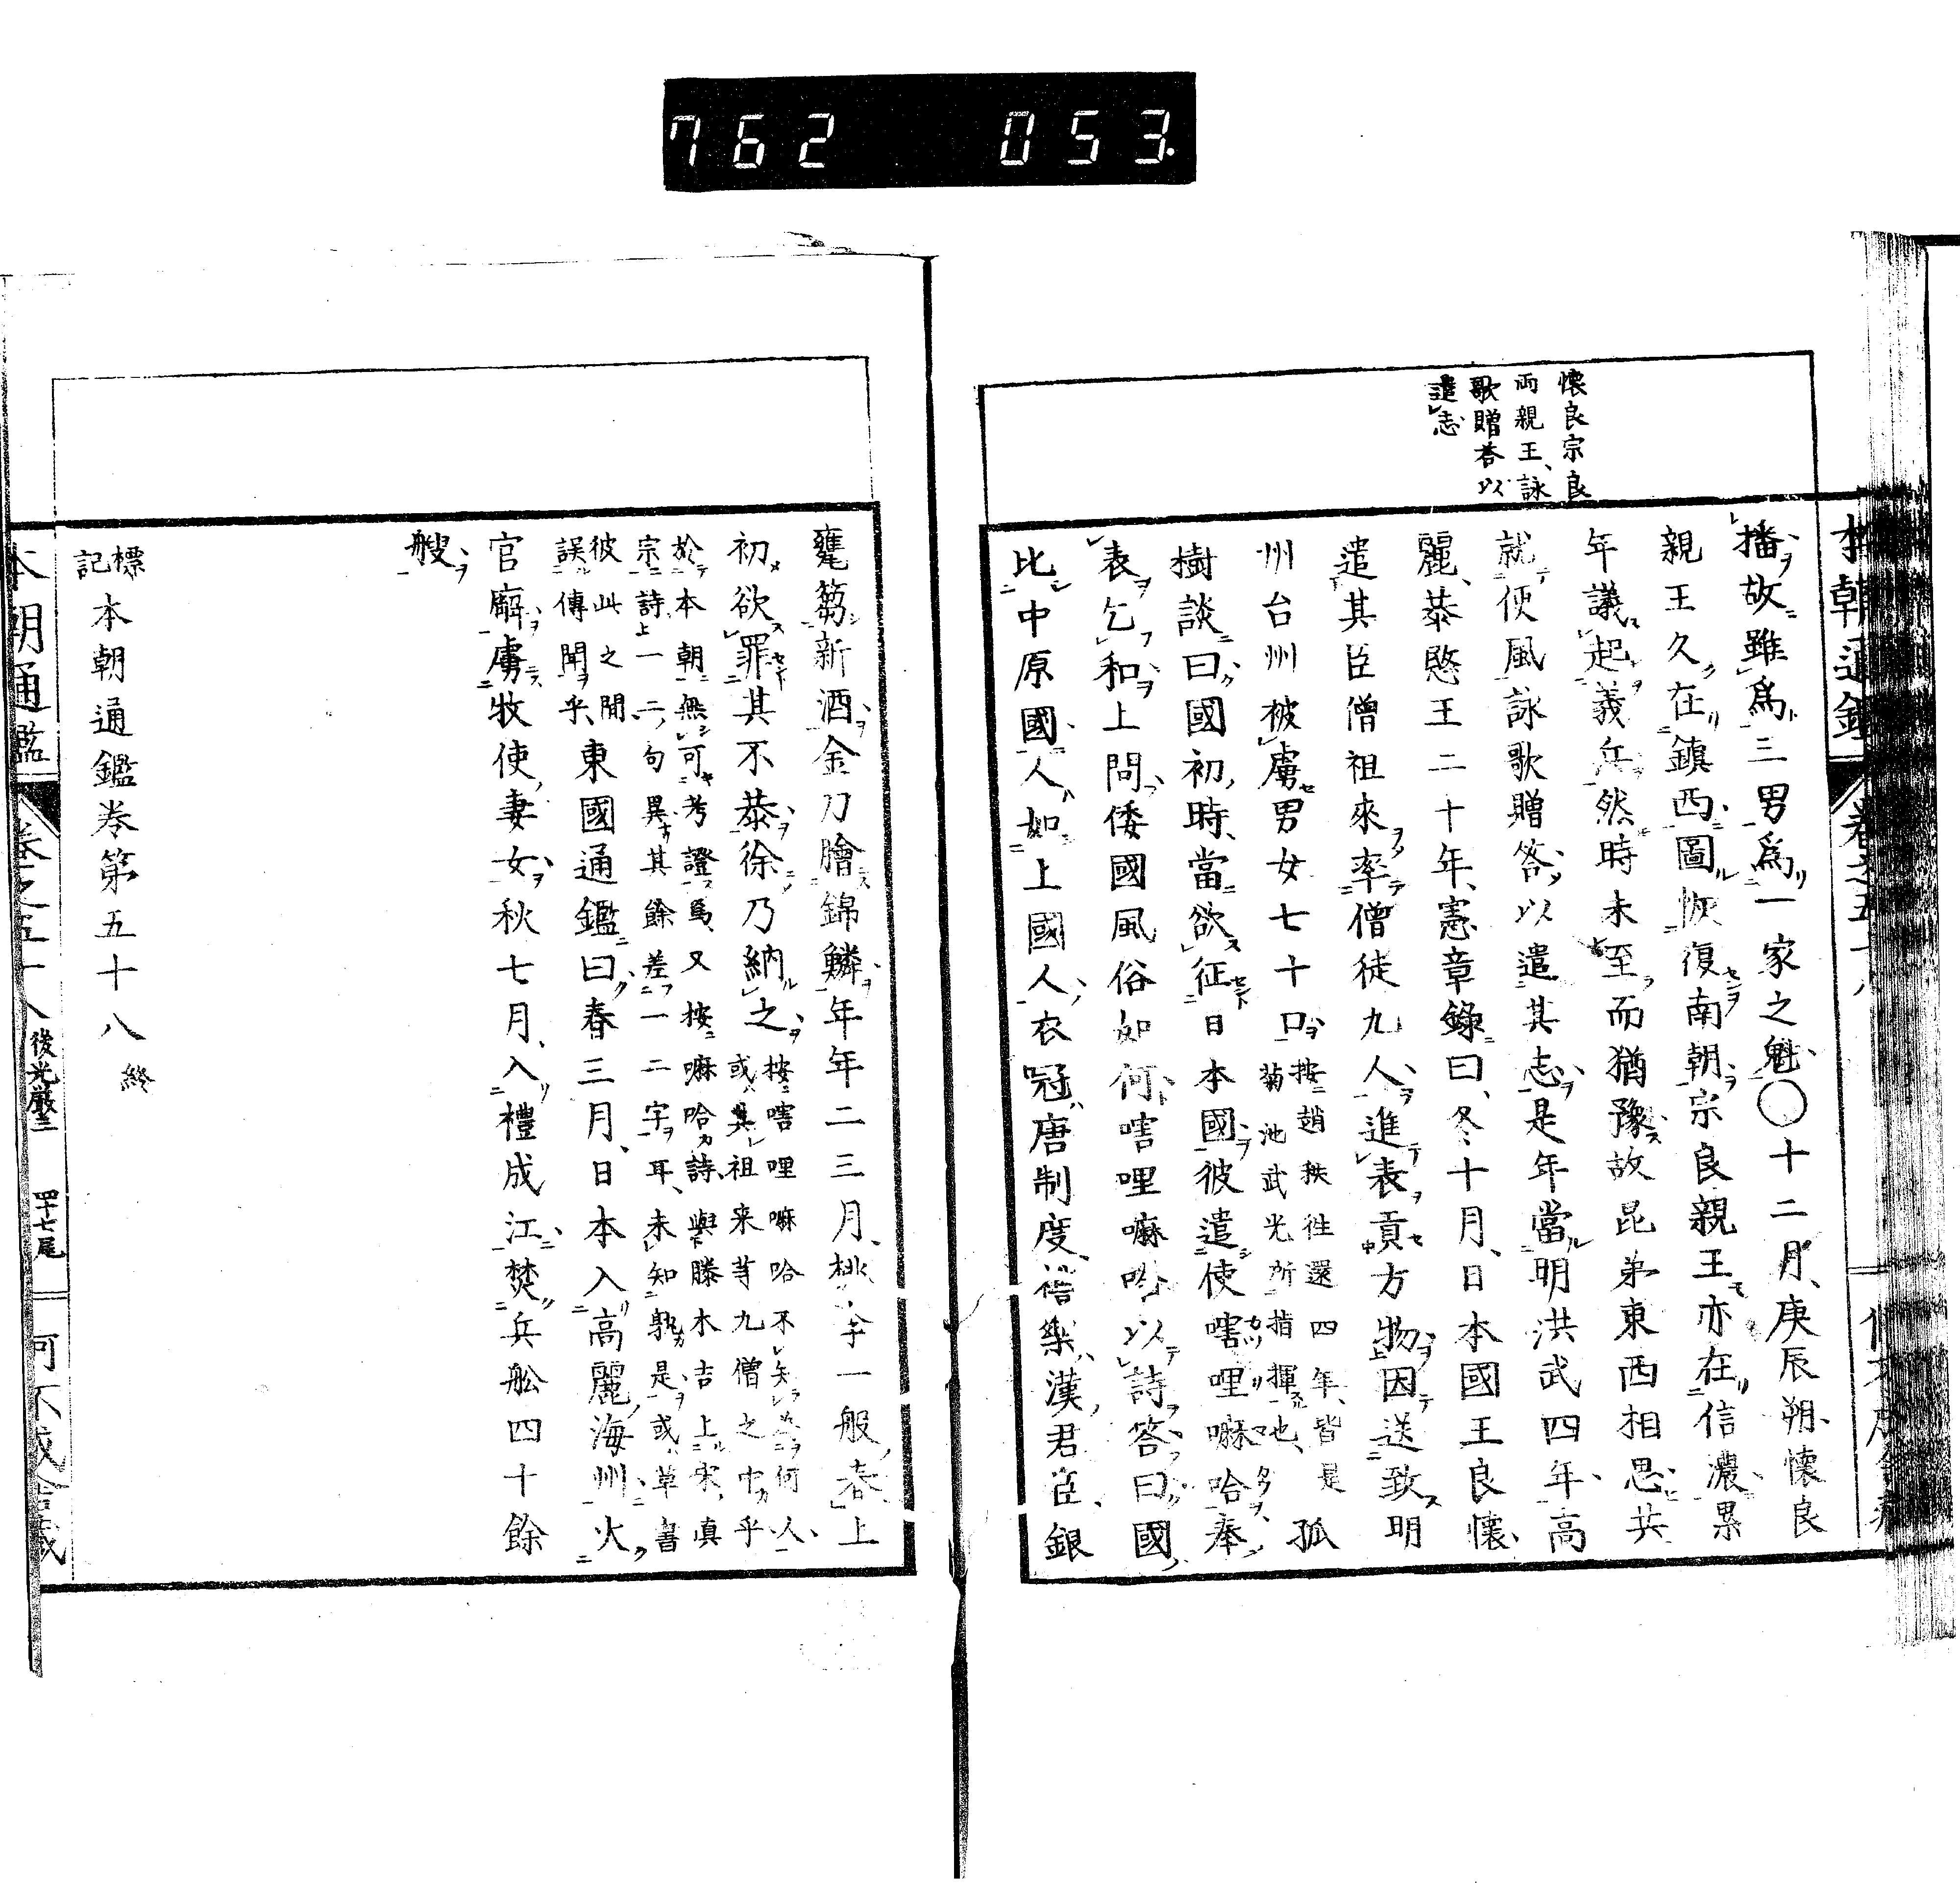 762 053
本朝通鑑 卷之五十八
懷良宗良
両親王詠
歌贈荅以
遣志
播故雖爲三男爲一家之魁○十二月庚辰朔懷良
親王久在鎮西圖恢復南朝宗良親王亦在信濃累
年議起義兵然時未至而猶豫故昆弟東西相思共
就便風詠歌贈答以遣其志是年當明洪武四年高
麗恭愍王二十年憲章錄曰冬十月日本國王良懷
遣其臣僧祖來率僧徒九人進表貢方物因送致明
州台州被虜男女七十口按趙秩徃還四年皆是菊池武光所指揮也孤
樹談曰國初時當欲征日本國彼遣使嗐哩嘛哈奉
表乞和上問倭國風俗如何嗐哩嘛哈以詩答曰國
比中原國人如上國人衣冠唐制度禮樂漢君臣銀
甕篘新酒金刀膾錦鱗年年二三月桃李一般春上
初欲罪其不恭徐乃納之按嗐哩嘛哈不知爲何人或其祖来等九僧之中乎
於本朝無可考證焉又按嘛哈詩與滕木吉上宋真
宗詩上一二句異其餘差一二字耳未知孰是或草書
彼此之間
誤傳聞乎東國通鑑曰春三月日本入高麗海州火
官廨虜牧使妻女秋七月入禮成江焚兵舩四十餘
艘
標記本朝通鑑卷第五十八終
本朝通鑑 卷之五十八 後光嚴三 四十七尾